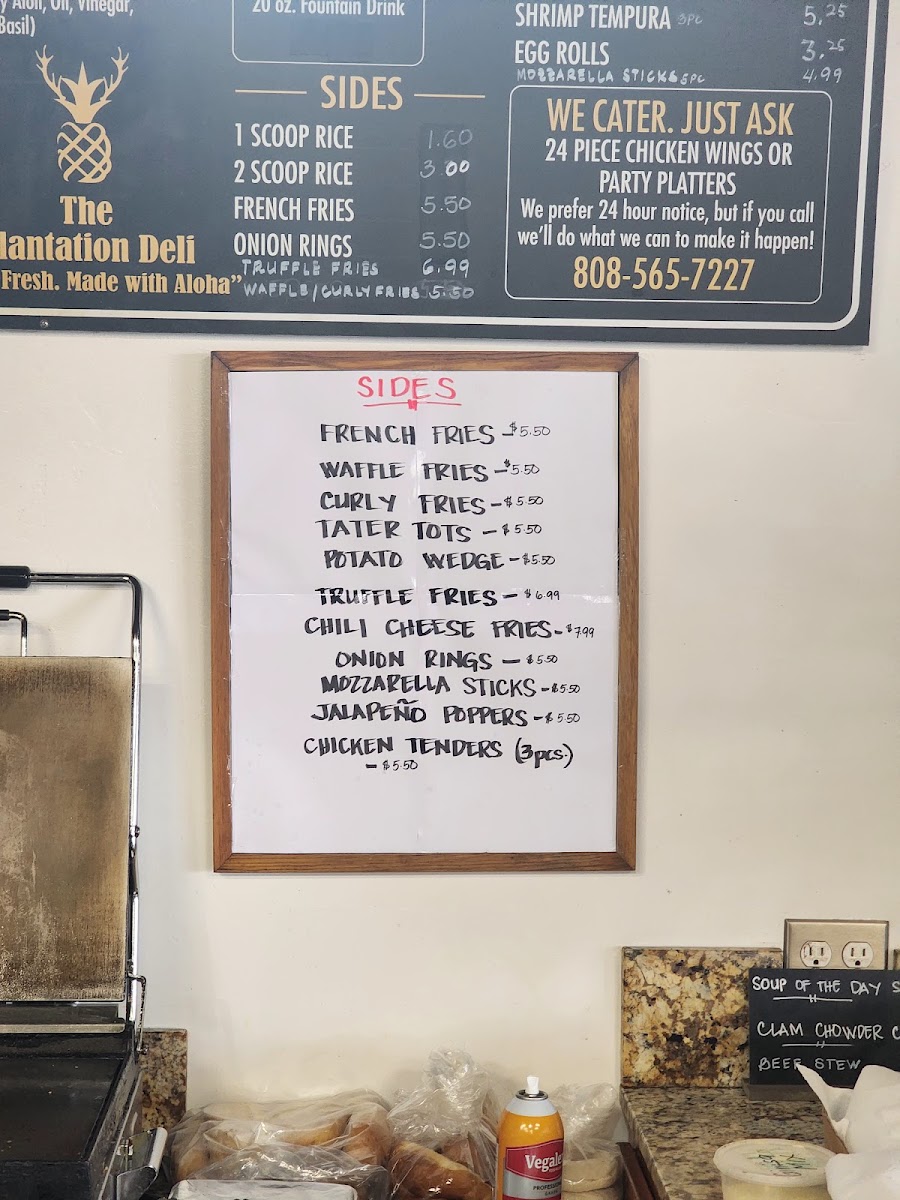 y Aioli, Oil, Vinegar,
Basil)
The
lantation Deli
Fresh. Made with Aloha”
20 oz. Fountain Drink
SIDES
1 SCOOP RICE 1.60
2 SCOOP RICE 3.00
FRENCH FRIES 5.50
ONION RINGS 5.50
TRUFFLE FRIES 6.99
WAFFLE/CURLY FRIES 5.50
SHRIMP TEMPURA 3PC 5.25
EGG ROLLS 3.25
MOZZARELLA STICKS 5PC 4.99
WE CATER. JUST ASK
24 PIECE CHICKEN WINGS OR
PARTY PLATTERS
We prefer 24 hour notice, but if you call
we'll do what we can to make it happen!
808-565-7227
SIDES
FRENCH FRIES - $5.50
WAFFLE FRIES - $5.50
CURLY FRIES - $5.50
TATER TOTS - $5.50
POTATO WEDGE - $5.50
TRUFFLE FRIES - $6.99
CHILI CHEESE FRIES - $7.99
ONION RINGS - $5.50
MOZZARELLA STICKS - $5.50
JALAPEÑO POPPERS - $5.50
CHICKEN TENDERS (3pcs.)
- $5.50
SOUP OF THE DAY S
CLAM CHOWDER C
BEEF STEW
Vegale
PROFESSIONAL